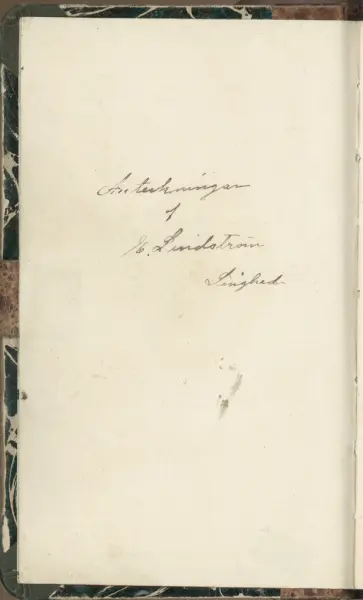 Anteckningar
af
E. Lindström
Linghed.